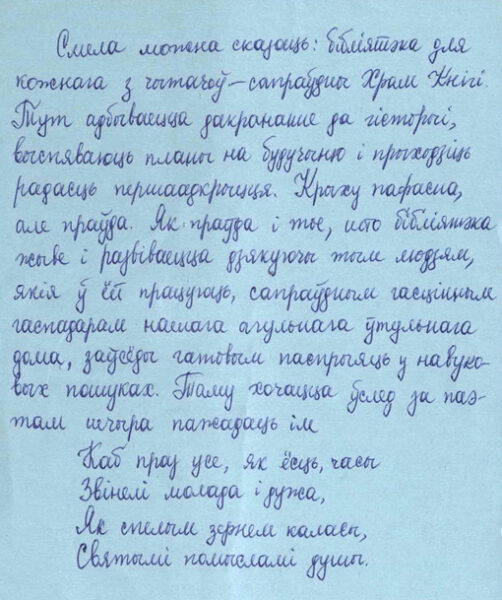 Смела можна сказаць: бібліятэка для
кожнага з чытачоў – сапраўдны Храм Кнігі.
Тут адбываецца дакрананне да гісторыі,
выспяваюць планы на будучыню і прыходзіць
радасць першаадкрыцця. Крыху пафасна,
але праўда. Як праўда і тое, што бібліятэка
жыве і развіваецца дзякуючы тым людзям,
якія ў ёй працуюць, сапраўдным гасцінным
гаспадарам нашага агульнага ўтульнага
дома, заўсёды гатовым паспрыяць у навуко-
вых пошуках. Таму хочацца ўслед за паэ-
там шчыра пажадаць ім
Каб праз усе, як ёсць, часы
Звінелі молада і дужа,
Як спелым зернем каласы,
Святымі помысламі душы.